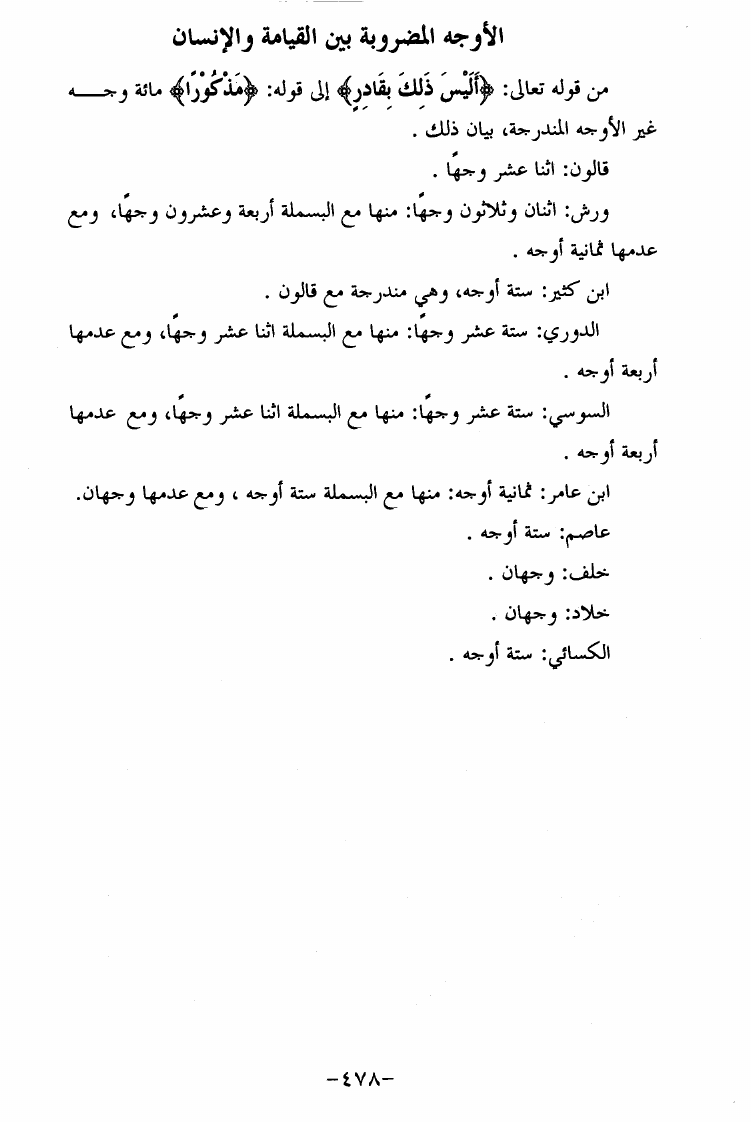 الأوجه المضروبة بين القيامة والإنسان
من قوله تعالى: ﴿أَلَيْسَ ذَلِكَ بِقَادِرٍ﴾ إلى قوله: ﴿مَذْكُورًا﴾ مائة وجـــه
غير الأوجه المندرجة، بيان ذلك .
قالون: اثنا عشر وجهًا .
ورش: اثنان وثلاثون وجهًا: منها مع البسملة أربعة وعشرون وجهًا، ومع
عدمها ثمانية أوجه .
ابن كثير: ستة أوجه، وهي مندرجة مع قالون .
الدوري: ستة عشر وجهًا: منها مع البسملة اثنا عشر وجهًا، ومع عدمها
أربعة أوجه .
السوسي: ستة عشر وجهًا: منها مع البسملة اثنا عشر وجهًا، ومع عدمها
أربعة أوجه .
ابن عامر: ثمانية أوجه: منها مع البسملة ستة أوجه ، ومع عدمها وجهان.
عاصم: ستة أوجه .
خلف: وجهان .
خلاد: وجهان .
الكسائي: ستة أوجه .
-٤٧٨-